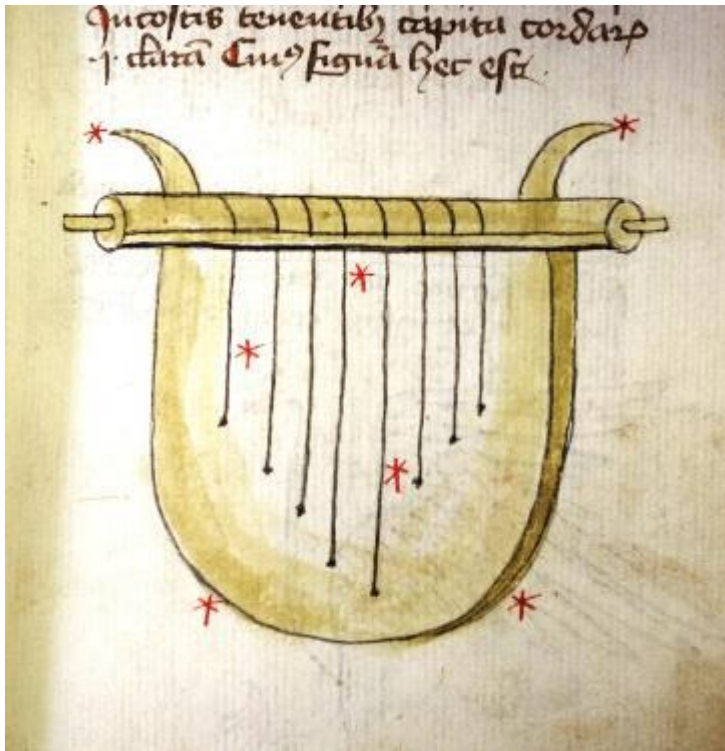 In costis tenentibꝫ capita cordaꝝ
·i· claram Cuiꝰ figura hec est.